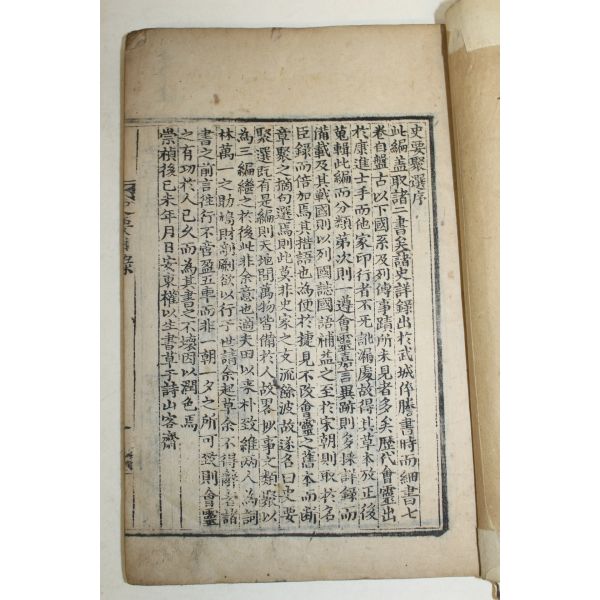 史要聚選序
此編盖取諸二書矣諸史詳錄出於武城倅謄書時而細書七
卷自盤古以下國系及列傳事蹟所未見者多矣歷代會靈出
於康進士手而他家印行者不死訛漏處故得其草本攷正後
蒐輯此編而分類第次則一遵會靈嘉言異跡則多採詳錄而
備載及其戰國則以列國誌國語補益之至於宋朝則取於名
臣錄而倍加焉其措語也為便於捷見不改會靈之舊本而斷
章聚之摘句選焉則此莫非史家之支流餘波故遂名曰史要
聚選既有是編則天地間萬物皆備於人故畧以事文類聚以
為三編繼之於後此非余意也適夫田以采朴致維兩人為詞
林萬一之助鳩財剞劂欲以行于世請余起草余不得辭蓋諸
書之前言往行不啻盈五車而非一朝一夕之所可致則會靈
之有功於人已久而為其書之不壞因以潤色焉
崇禎後己未年月日安東權以生書草于詩山客齋